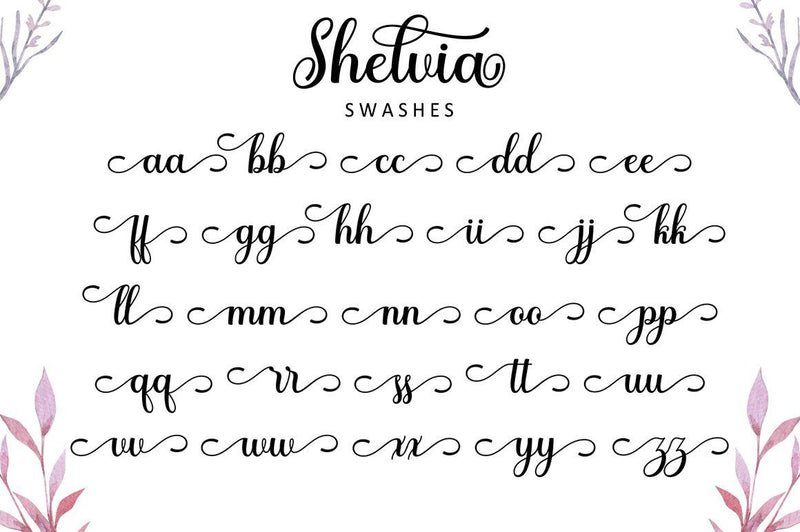 Shelvia
SWASHES
aa bb cc dd ee
ff gg hh ii jj kk
ll mm nn oo pp
qq rr ss tt uu
vv ww xx yy zz